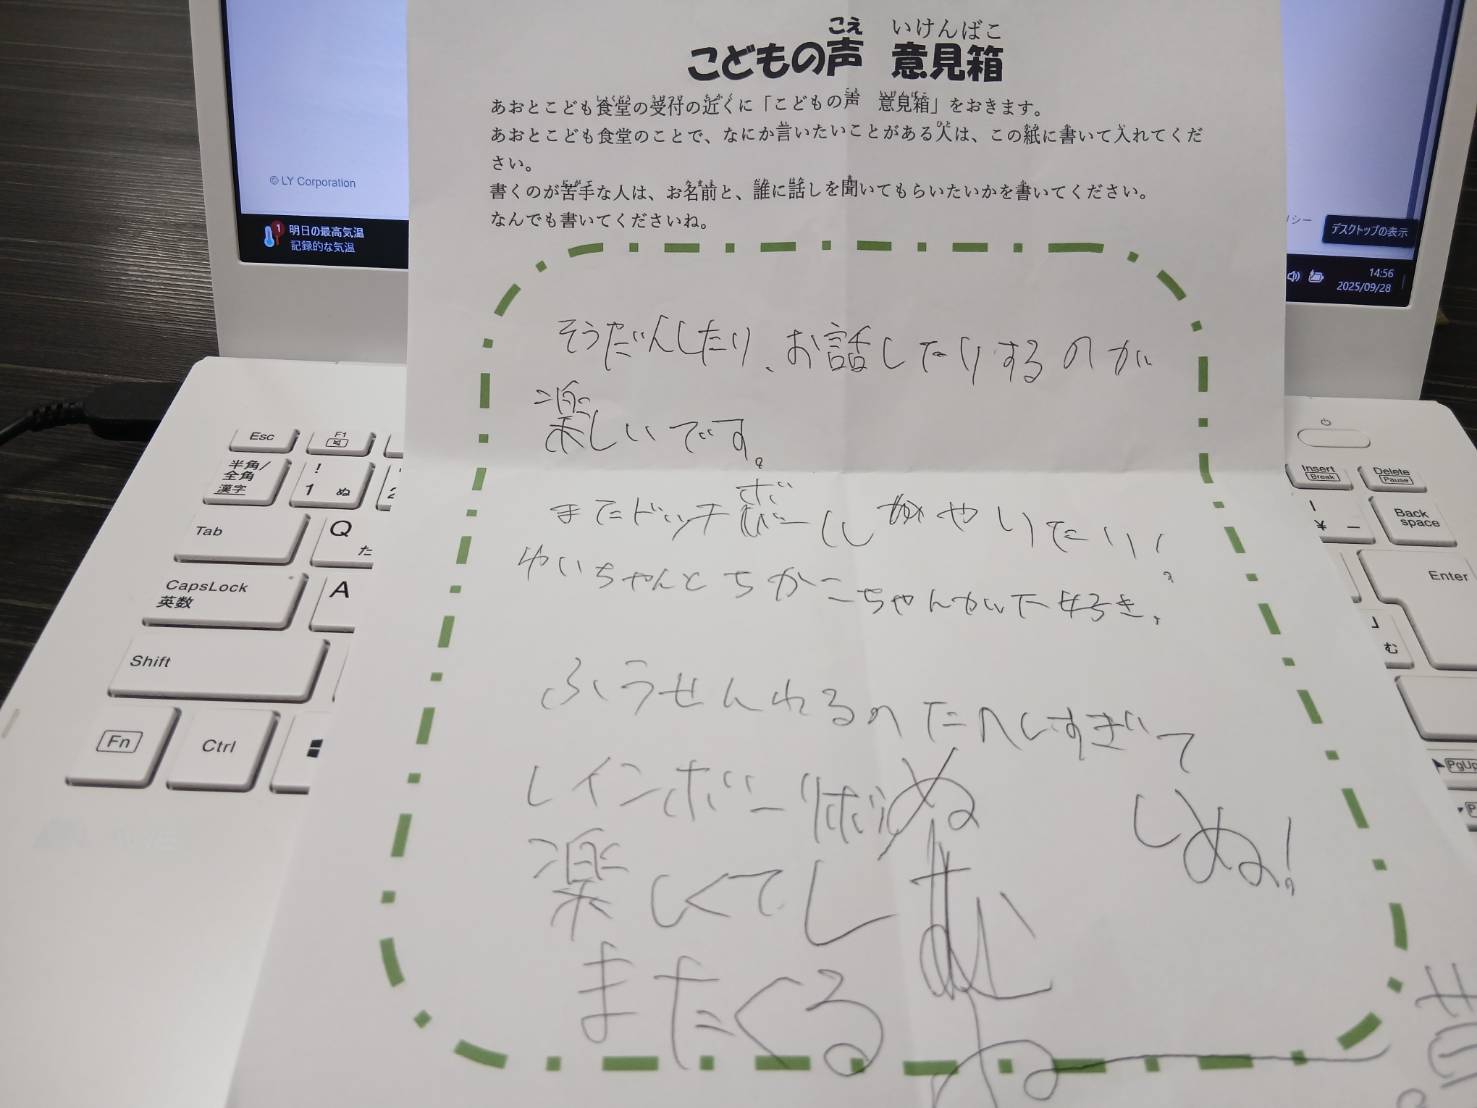 こえ いけんばこ
こどもの声 意見箱
あおとこども食堂の受付の近くに「こどもの声 意見箱」をおきます。
あおとこども食堂のことで、なにか言いたいことがある人は、この紙に書いて入れてくだ
さい。
書くのが苦手な人は、お名前と、誰に話しを聞いてもらいたいかを書いてください。
なんでも書いてくださいね。
そうだんしたり、お話したりするのが
楽しいです。
またドッチボールしがやりたい!
ゆいちゃんとちかこちゃんが大好き。
ふうせんわるのたのしすぎて
しぬ!
レインボー
楽しくてし
またくる
ね
© LY Corporation
1
明日の最高気温
記録的な気温
シー
デスクトップの表示
14:56
2025/09/28
Esc
F1
半角/
全角
漢字
!
1 ぬ
2
Tab
Q
た
CapsLock
英数
A
Shift
Fn
Ctrl
Insert
Break
Delete
Pause
¥ ー
Back
space
Enter
」
む
PgUp